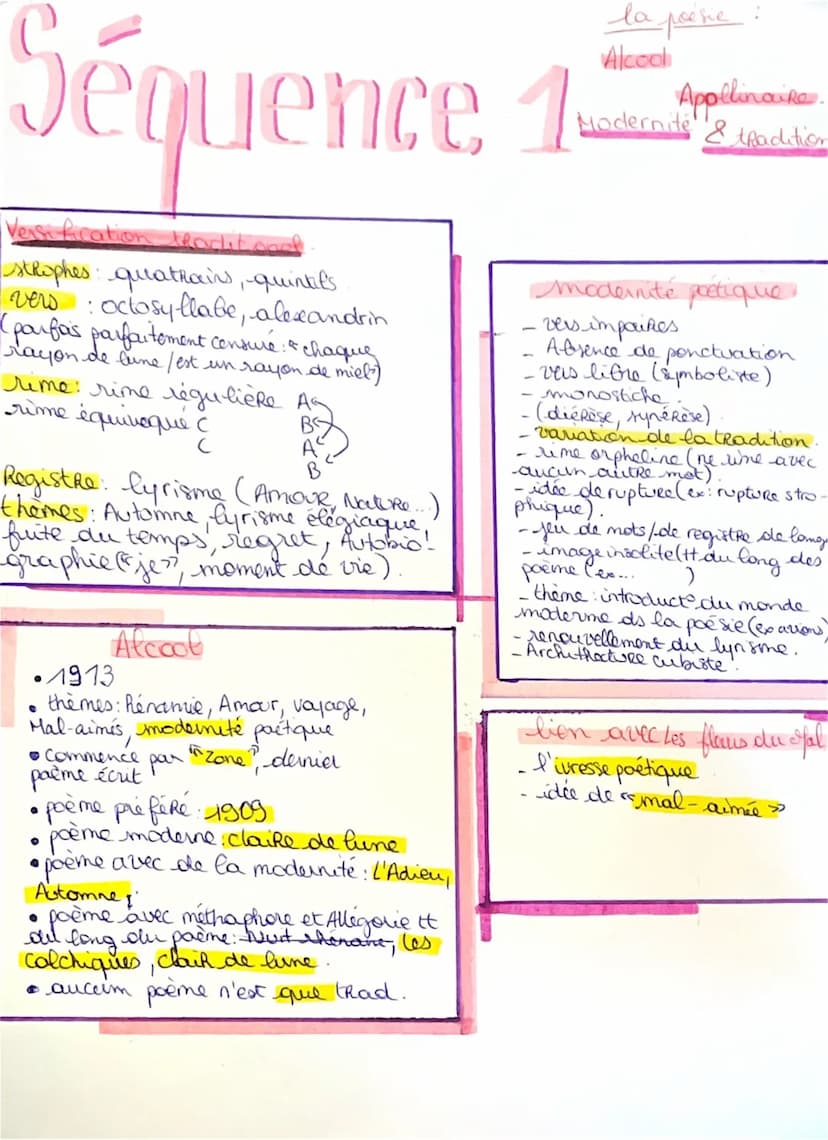 Séquence 1
la poésie :
Alcool
Appolinaire.
Modernité
& tradition
Versification traditionnel
strophes : quatrains, quintils
vers : octosyllabe, alexandrin
(parfois parfaitement censuré : "chaque
rayon de lune / est un rayon de miel")
rime : rime régulière A
rime équivoque C B
C A
B
Registre : lyrisme (Amour, Nature...)
thèmes : Automne, lyrisme élégiaque,
fuite du temps, regret, Autobio-
graphie ("je", moment de vie).
modernité poétique
- vers impaires
- Absence de ponctuation
- vers libre (symboliste)
- monostiche.
- (diérèse, synérèse)
- variation de la tradition.
- rime orpheline (ne rime avec
aucun autre mot).
- idée de rupture (ex : rupture stro-
phique).
- jeu de mots / de registre de lang
- image insolite (tt du long des
poème (ex... )
- thème : introduct° du monde
moderne ds la poésie (ex avions)
- renouvellement du lyrisme.
- Archithecture cubiste.
Alcool
• 1913
• thèmes : Rénanie, Amour, voyage,
Mal-aimés, modernité poétique
• commence par "Zone", dernier
poème écrit
• poème préféré : 1909
• poème moderne : claire de lune
• poème avec de la modernité : L'Adieu,
Automne,
• poème avec méthaphore et Allégorie tt
du long du poème : Nuit rhénane, les
colchiques, clair de lune.
• aucun poème n'est que trad.
lien avec les fleurs du Mal
- l'ivresse poétique
- idée de "mal-aimée"